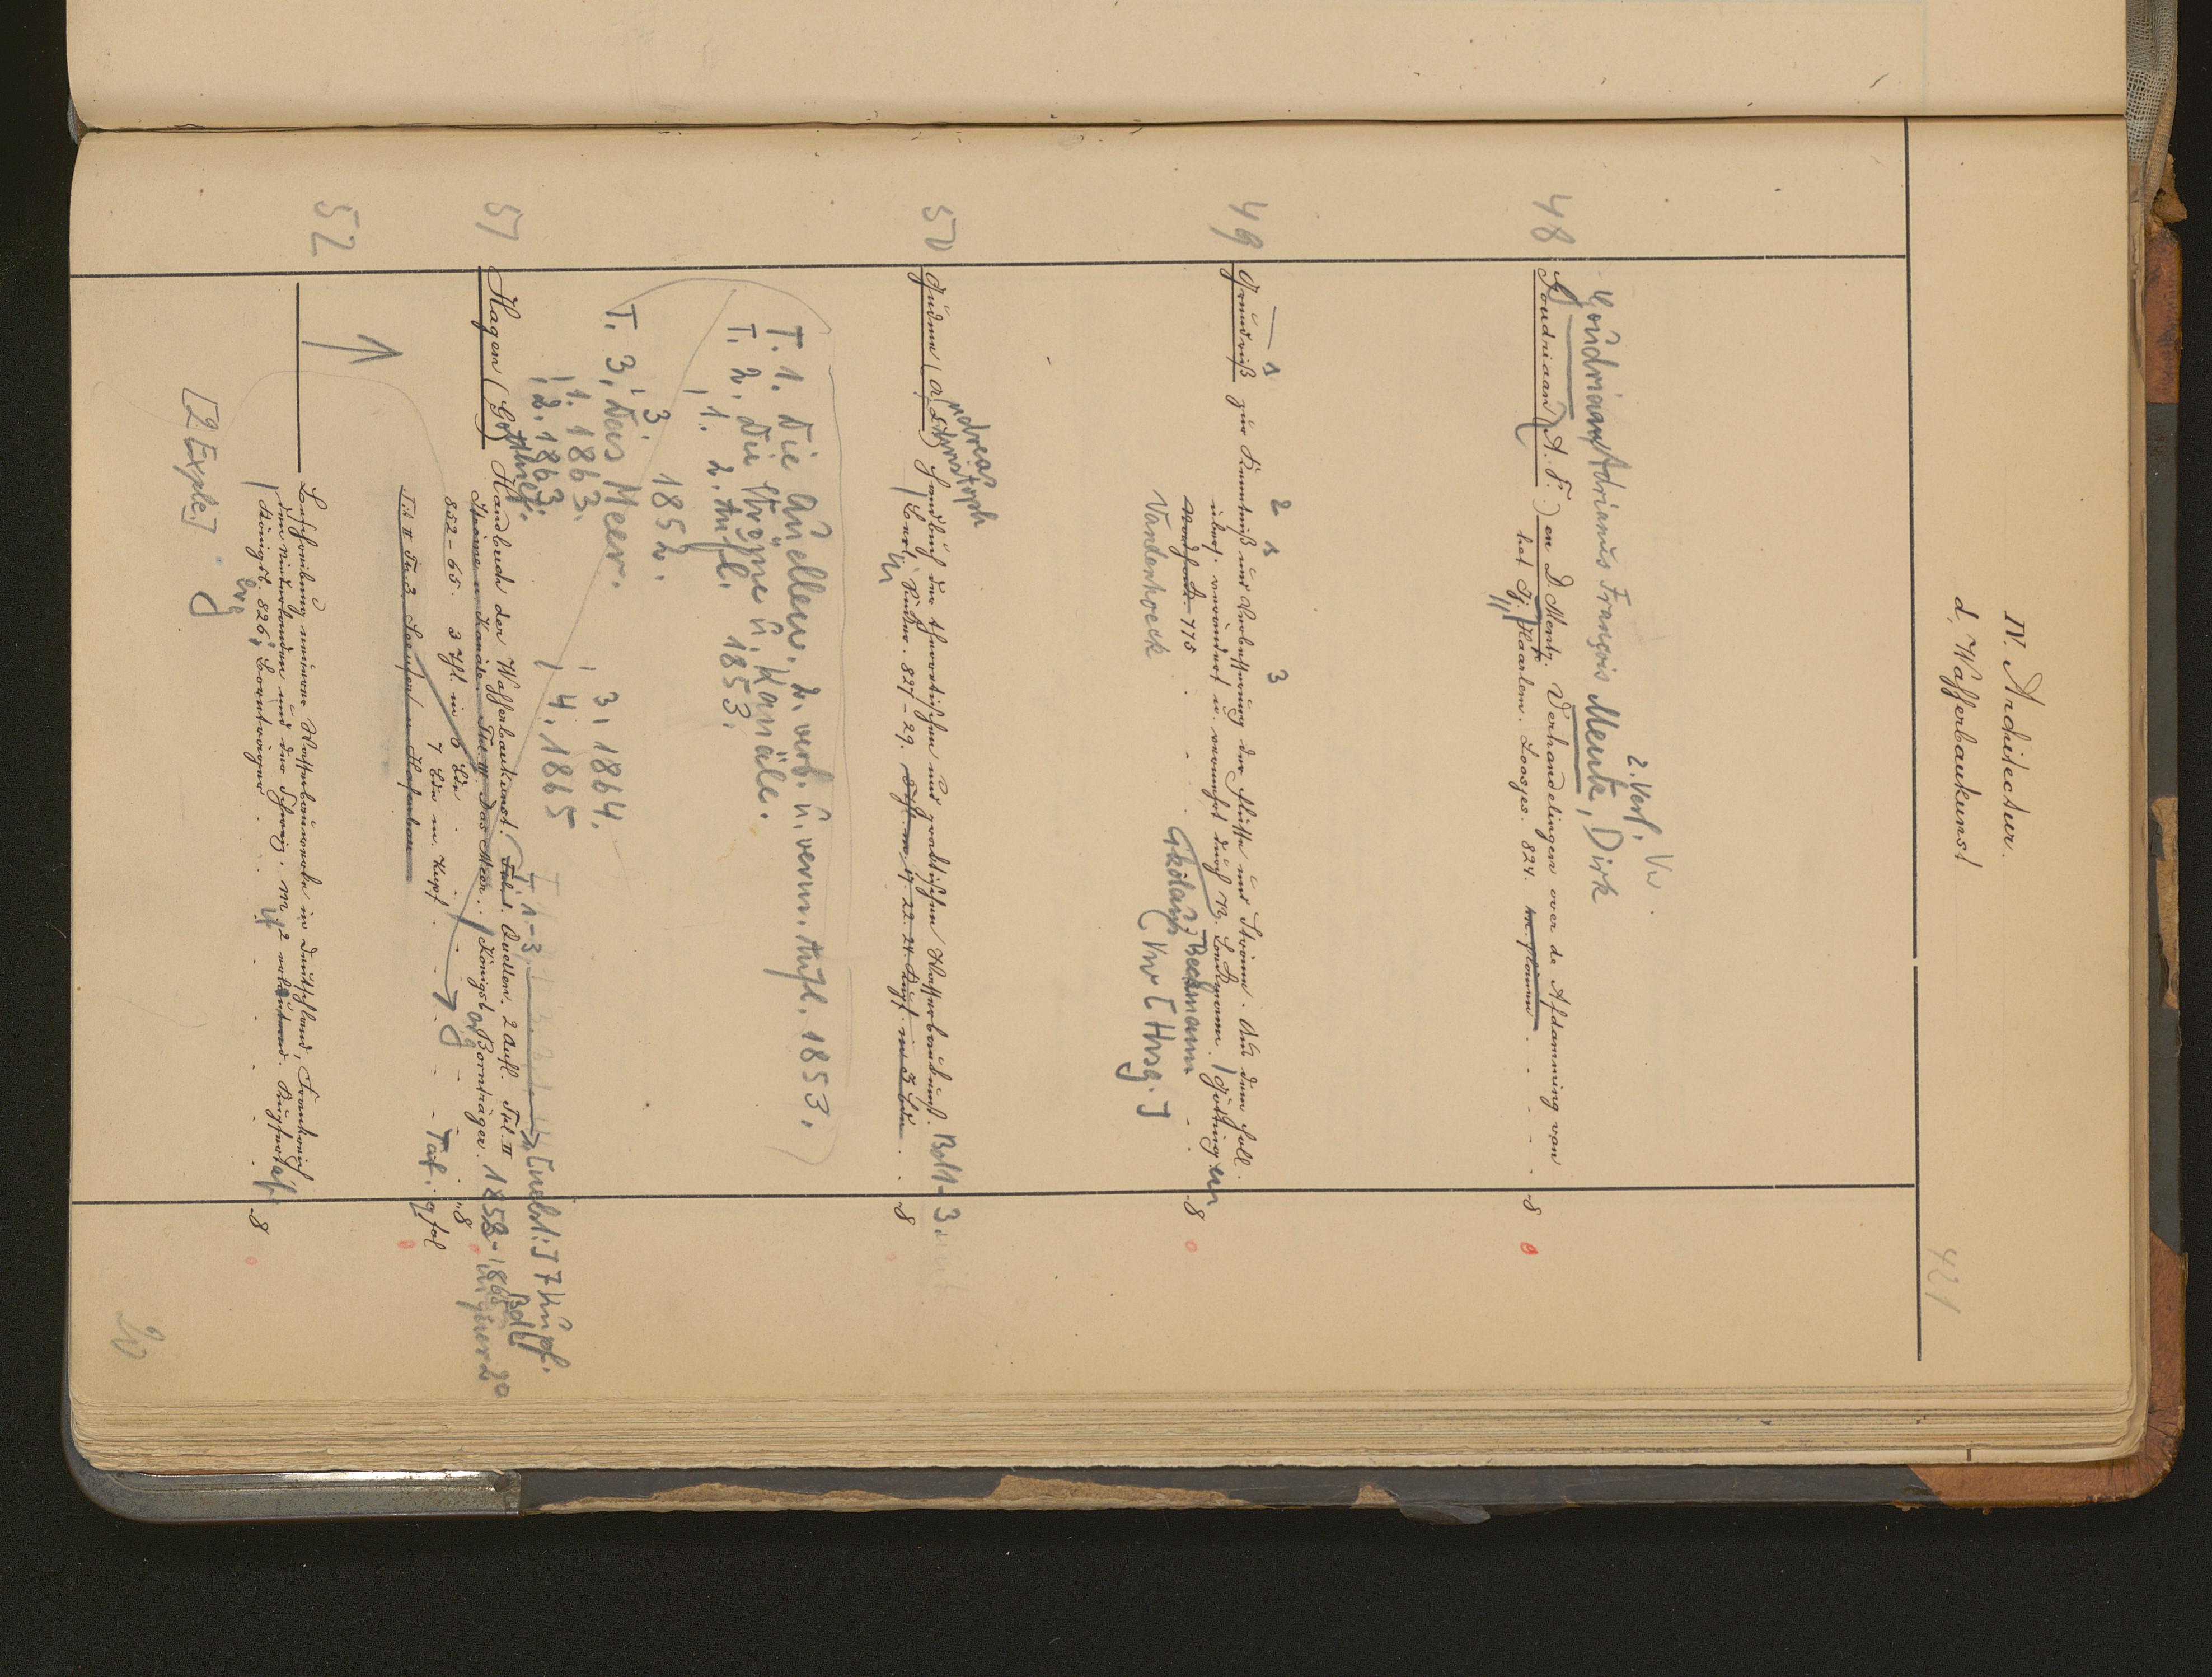 IV. Architectur.
d, Wasserbaukunst
421
2. Verf. Vw.
Goudriaan, Adrianus François Mentz, Dirk
48 Goudriaan (A. F.) en D. Mentz. Verhandelingen over de Afdamming van
het Ij. Haarlem. Loosjes. 824. m. planen 8
1 2 1 3
49 Grundriß zur Kenntniß und Verbesserung der Flüsse und Ströme. Aus dem Holl.
übers. verändert u. vermehrt durch N. Beckmann. Göttingen
775 8
Vandenhoeck
Nikolaus Beckmann
Vw [Hrsg.]
Andreas Christoph
50 Gudme (A. C.) Handbuch der theoretischen und practischen Wasserbaukunst. Bd 1-3.
Berl. Rücker. 827-29. in 3 Bdn 8
T. 1. Die Quellen. 2. verb. u. verm. Aufl. 1853.
T. 2. Die Ströme u. Kanäle.
1. 2. Aufl. 1853.
3. 1852.
T. 3. Das Meer.
1. 1863. 3. 1864.
2. 1863. 4. 1865
T. 1-3. [nebst:] 7 Kupf.
51 Hagen (Gotthilf) Handbuch der Wasserbaukunst. Thl. I. Quellen. 2 Aufl. Thl. II
Ströme u. Kanäle. Thl. III. Das Meer. Königsb. Bornträger. 1852-1865
852-65. 3 Thl. in 6 Bdn 8
7 Bde m. Kupf. Taf. q fol
52 Beschreibung neuerer Wasserbauwerke in Deutschland, Frankreich
den Niederlanden und der Schweiz. M. Kupfertaf.
Königsb. 826. Bornträger 8
[2 Exple]